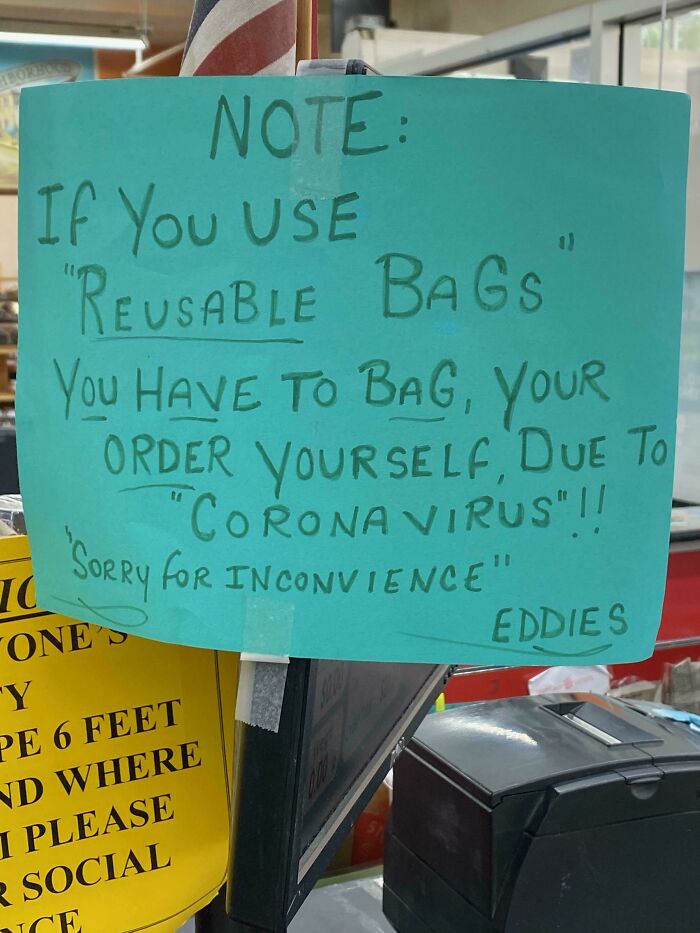 NOTE:
IF YOU USE
"REUSABLE BAGS"
YOU HAVE TO BAG, YOUR
ORDER YOURSELF, DUE TO
"CORONAVIRUS"!!
"SORRY FOR INCONVIENCE"
EDDIES
YONE'S
Y
PE 6 FEET
ND WHERE
I PLEASE
R SOCIAL
NCE
0.00